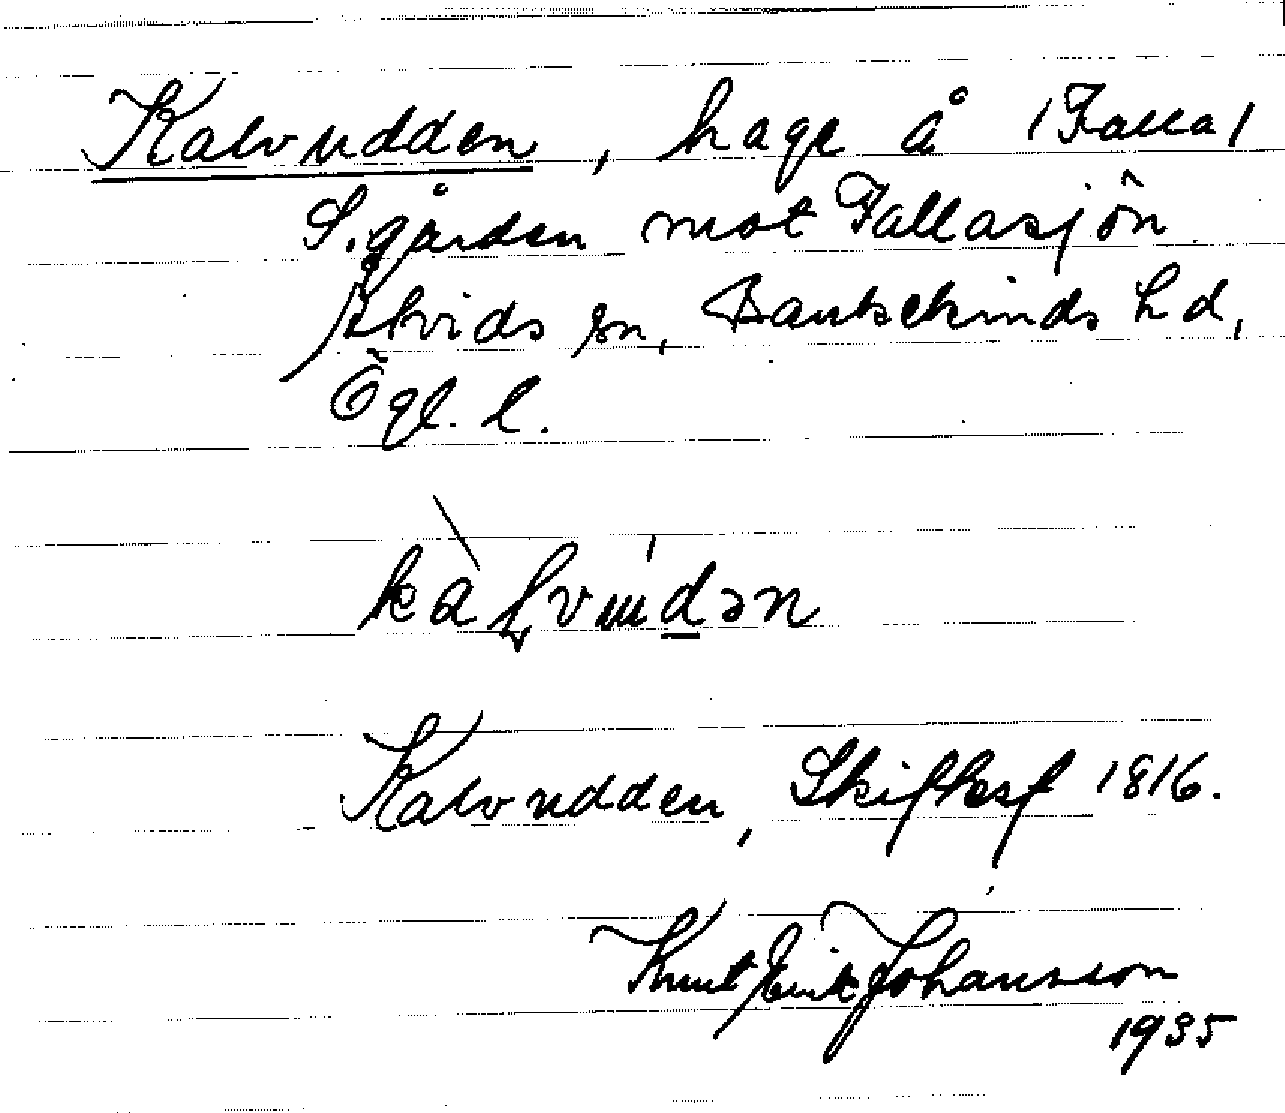 Kalvudden, hage å /Falla/
S.gården mot Fallasjön
Åtvids sn, Bankekinds hd,
Ögl. l.
Kalvudden, Skifteskf 1816.
Knut Erik Johansson
1935